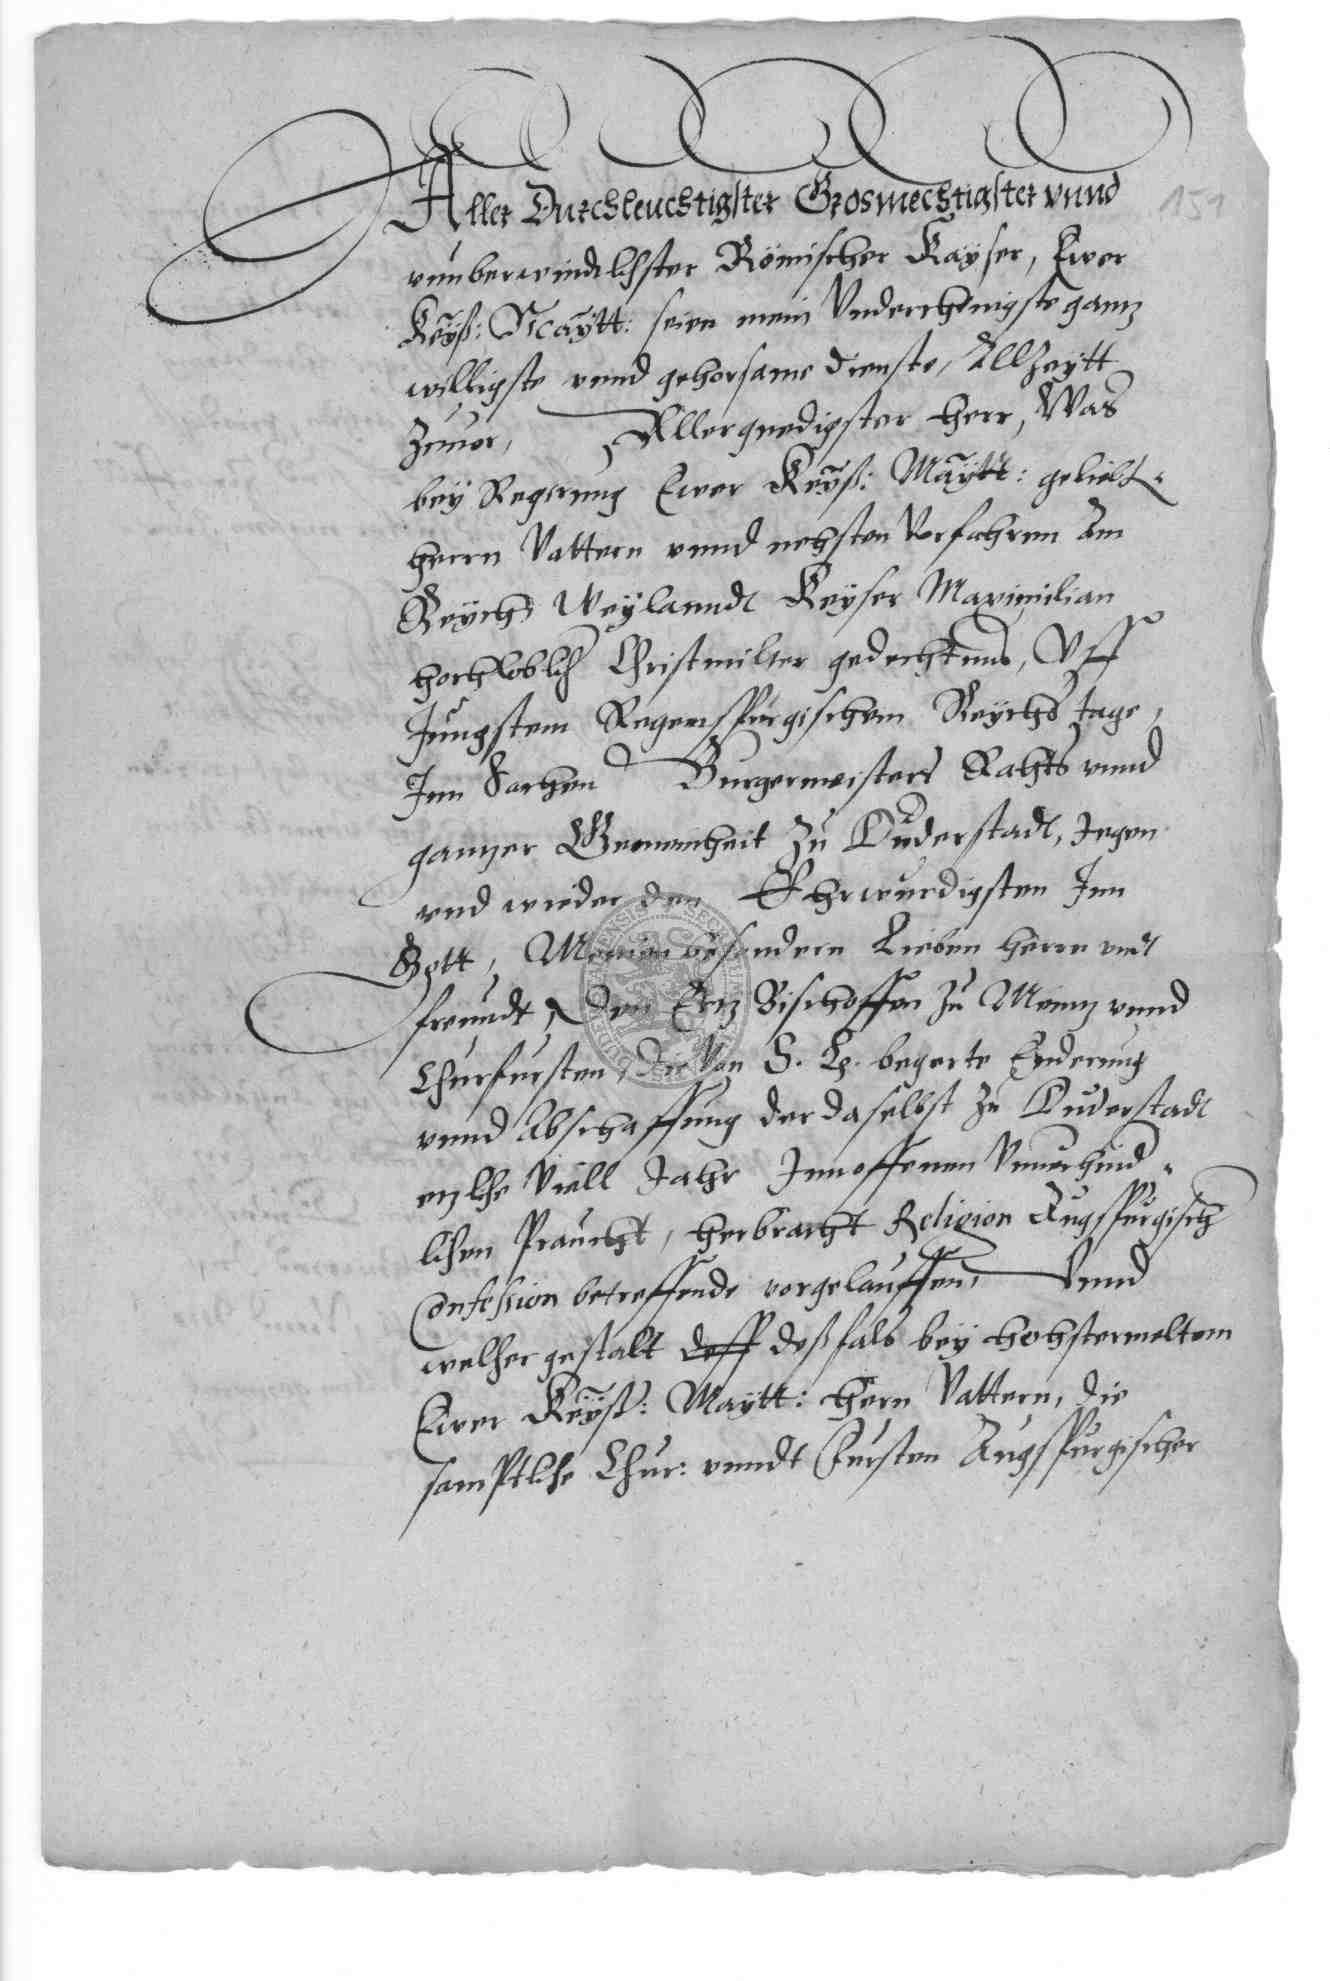 Aller Durchleuchtigster Grosmechtigster vnnd
151
vnuberwindlichster Römischer Kayser, Ewer
Keyß: Maytt: seien mein Vnderthenigste gantz
willigste vnnd gehorsame dienste, Allzeytt
Zuuor, Allergnedigster Herr, Was
bey Regirung Ewer Keyß: Maytt: geliebt
herrn Vattern vnnd nehsten Vorfahren Am
Reych Weylanndt Keyser Maximilian
hochloblich Christmilter gedechtnus, Vff
Jungstem Regenspurgischem Reychs tage,
Inn Sachen Burgermeisters Rahts vnnd
gantzer Gemeinheit zu Duderstadt, Jegen
vnd wieder den Ehrwurdigsten Inn
Gott, Meinen besondern Lieben herrn vndt
freundt, Den Ertz Bischoffen zu Meintz vnnd
Churfursten, Die Von S. L. begerte Enderung
vnnd Abschaffung der daselbst zu Duderstadt
etzliche Viell Jahr Inn offenen Vnuerhind
lichen Praucht, herbracht Religion Augspurgisch
Confession betreffende vorgelauffen, Vnnd
welcher gestalt deßfals bey hohstermeltem
Ewer Keyß: Maytt: Hern Vattern, die
samptliche Chur: vnndt Fursten Augspurgischer